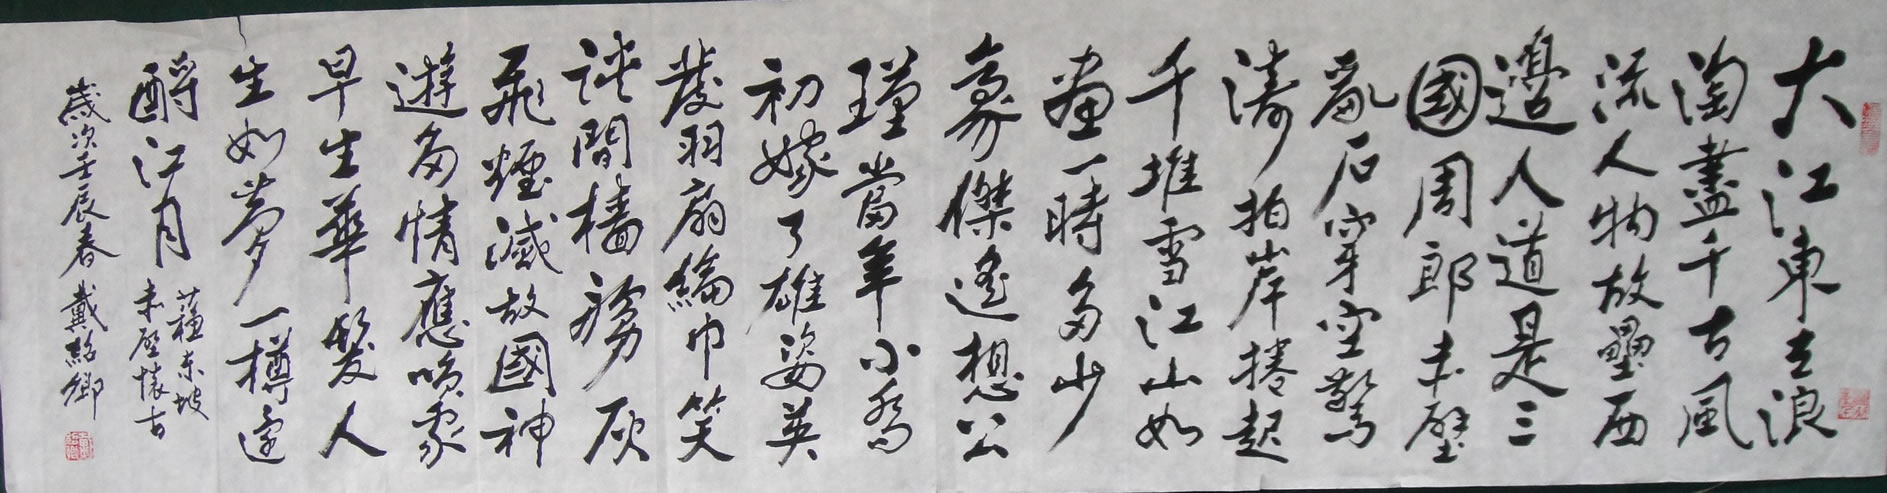 大江東去浪
淘盡千古風
流人物故壘西
邊人道是三
國周郎赤壁
亂石穿空驚
濤拍岸捲起
千堆雪江山如
畫一時多少
豪傑遙想公
瑾當年小喬
初嫁了雄姿英
發羽扇綸巾笑
談間檣虜灰
飛煙滅故國神
遊多情應咲我
早生華髮人
生如夢一樽還
酹江月
蘇東坡
赤壁懷古
歲次壬辰春 戴紹